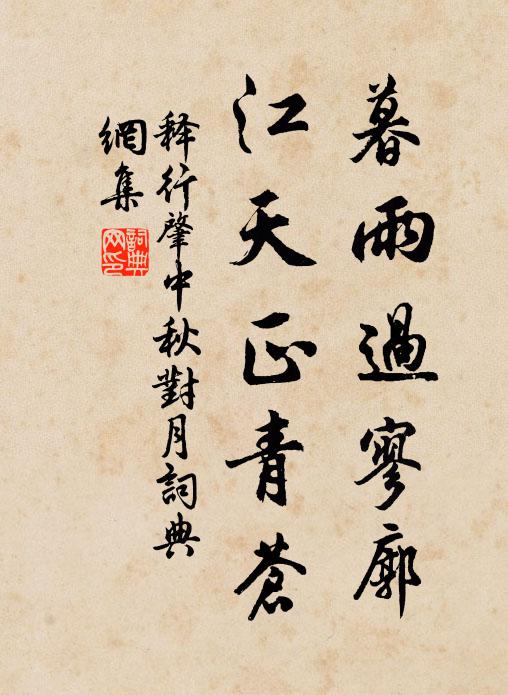 暮雨過寥廓
江天正青蒼
释行肇中秋對月詞典
網集
詞典
网印